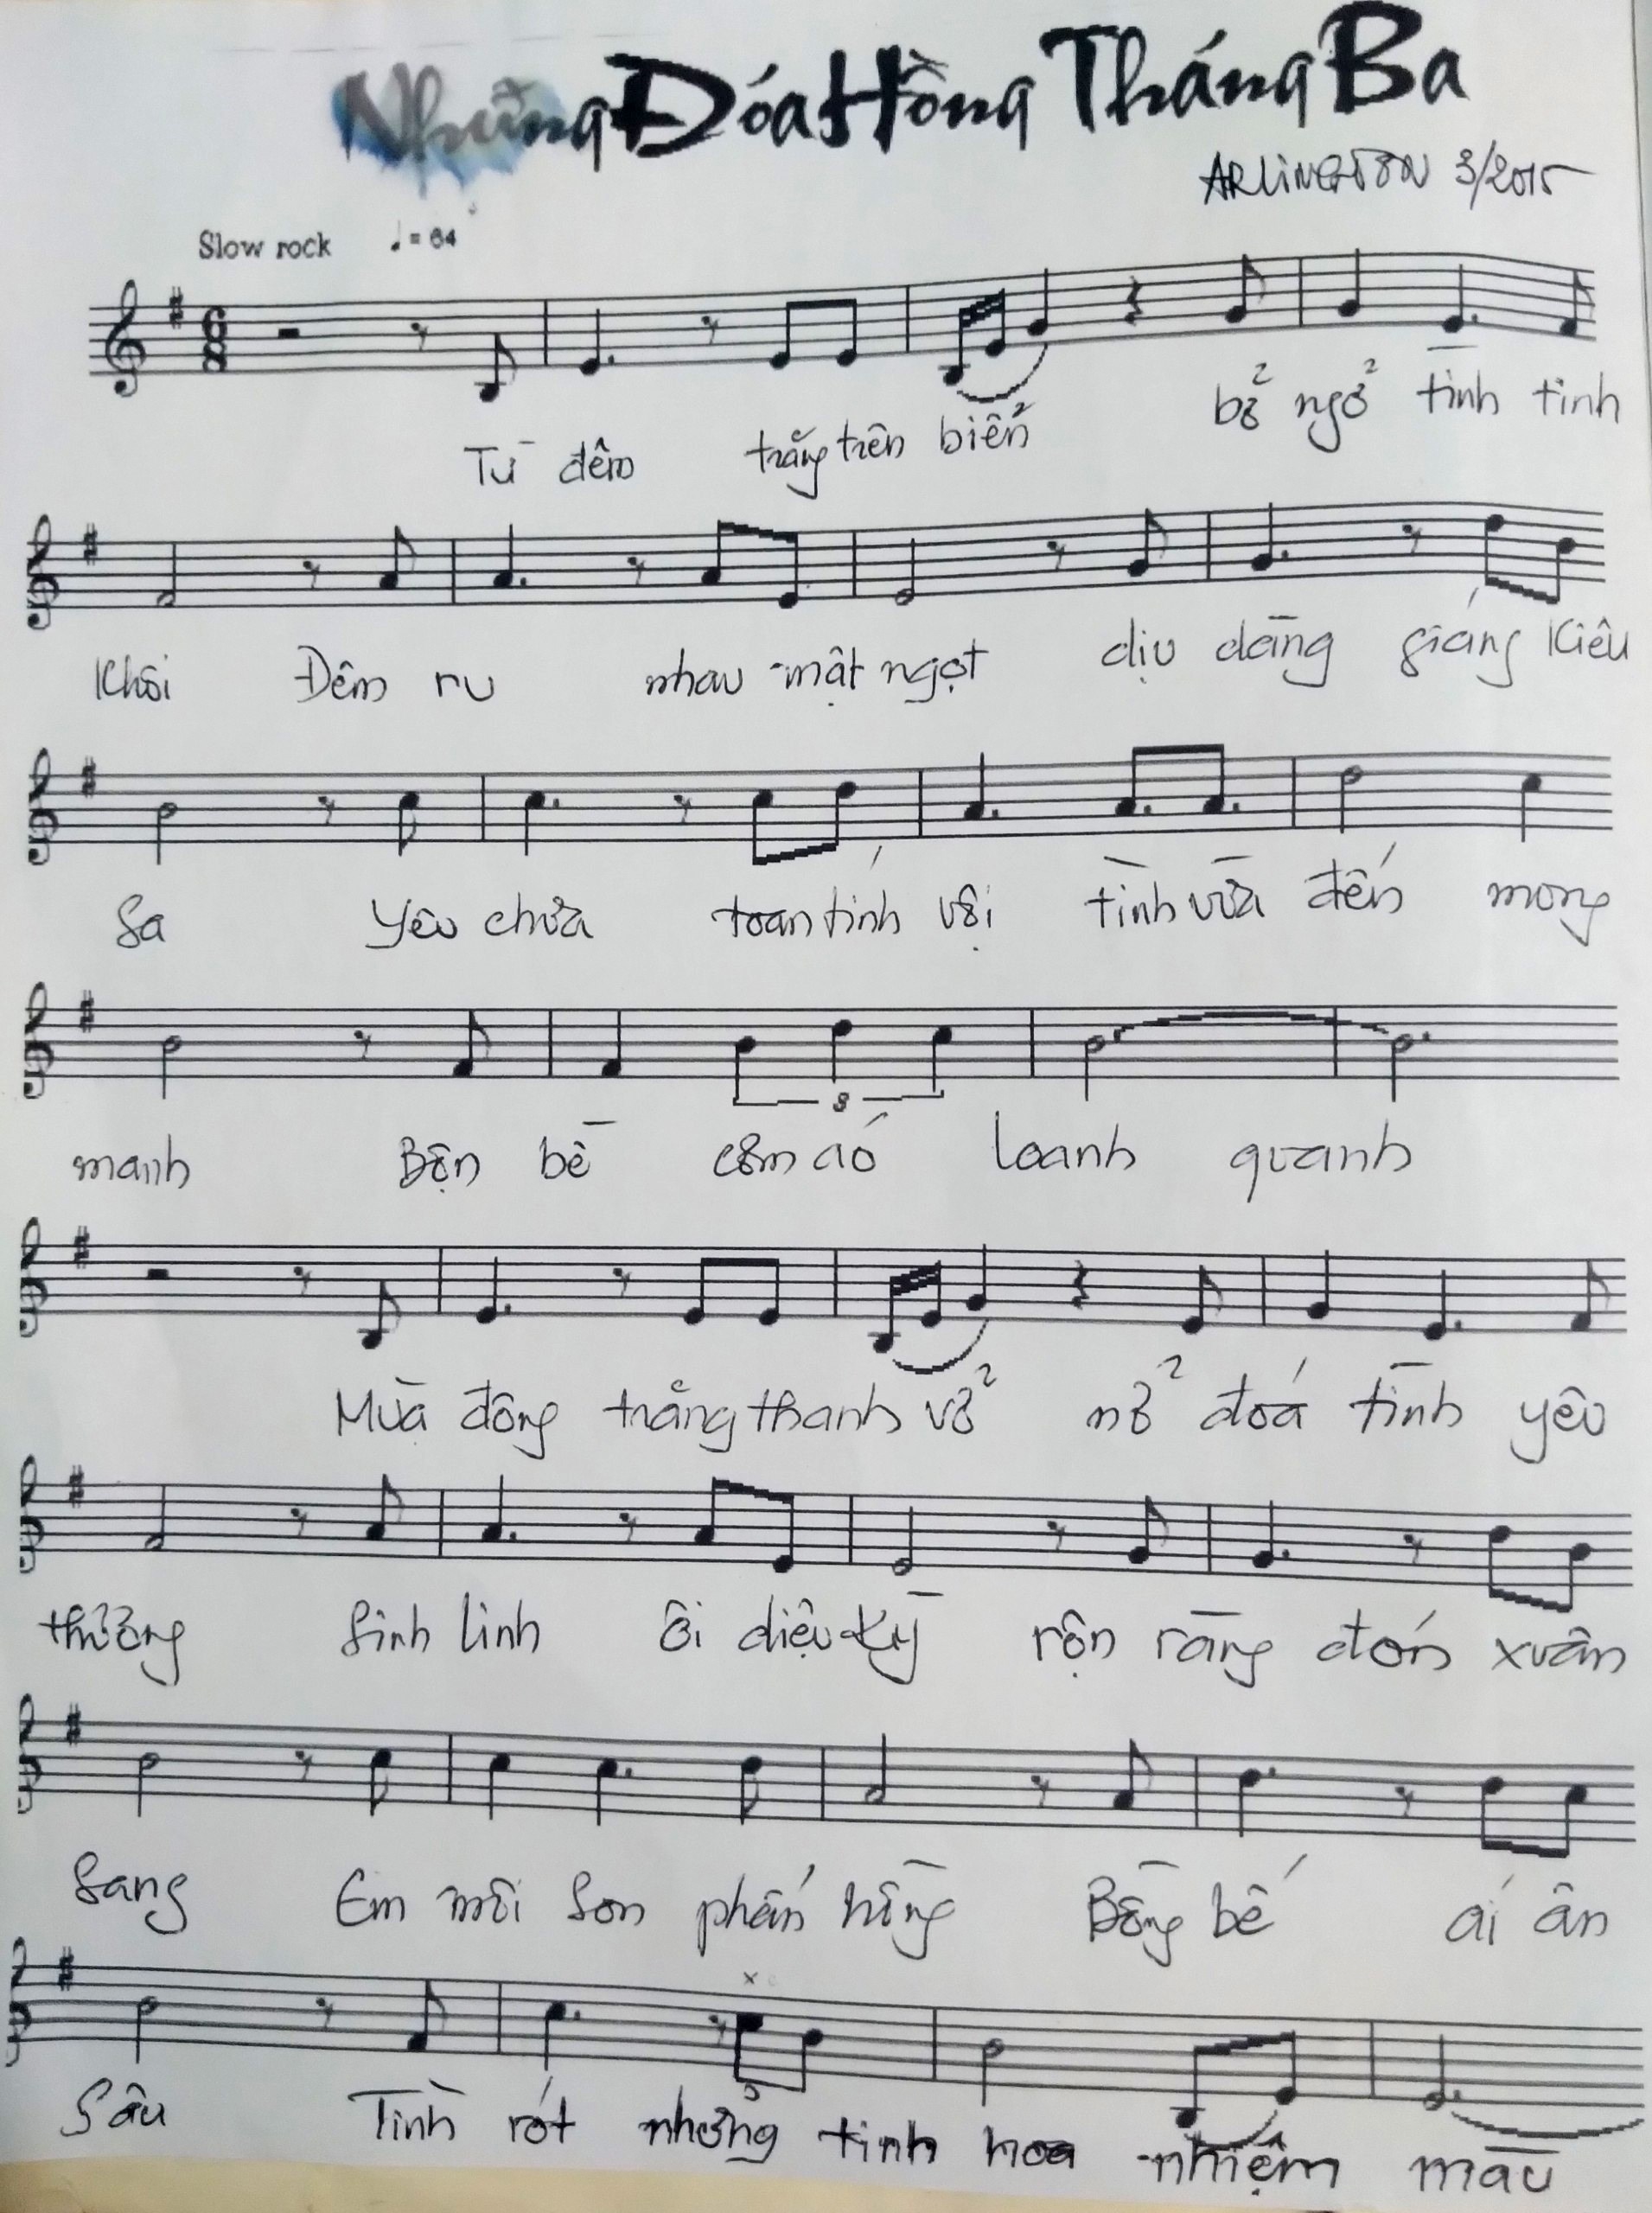 Những Đóa Hồng Tháng Ba
ARLINGTON 3/2015
Slow rock ♩= 64
Từ đêm trăng trên biển bở ngở tình tinh
Khôi Đêm ru nhau mật ngọt dịu dàng giáng Kiêu
Sa Yêu chưa toan tính vội tình vừa đến mong
manh Bộn bề cơm áo loanh quanh
3
Mùa đông trăng thanh vở nở đoá tình yêu
thương Sinh linh ôi diệu kỳ rộn ràng đón xuân
Sang Em môi Son phấn hồng Bồng bế ái ân
Sâu Tình rót những tinh hoa nhiệm mầu